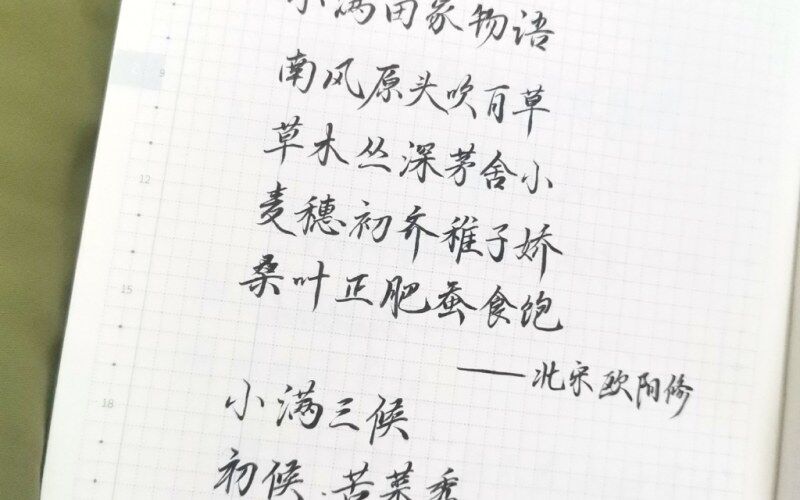 小满田家物语
南风原头吹百草
草木丛深茅舍小
麦穗初齐稚子娇
桑叶正肥蚕食饱
——北宋欧阳修
小满三候
初候 苦菜秀
9
12
15
18